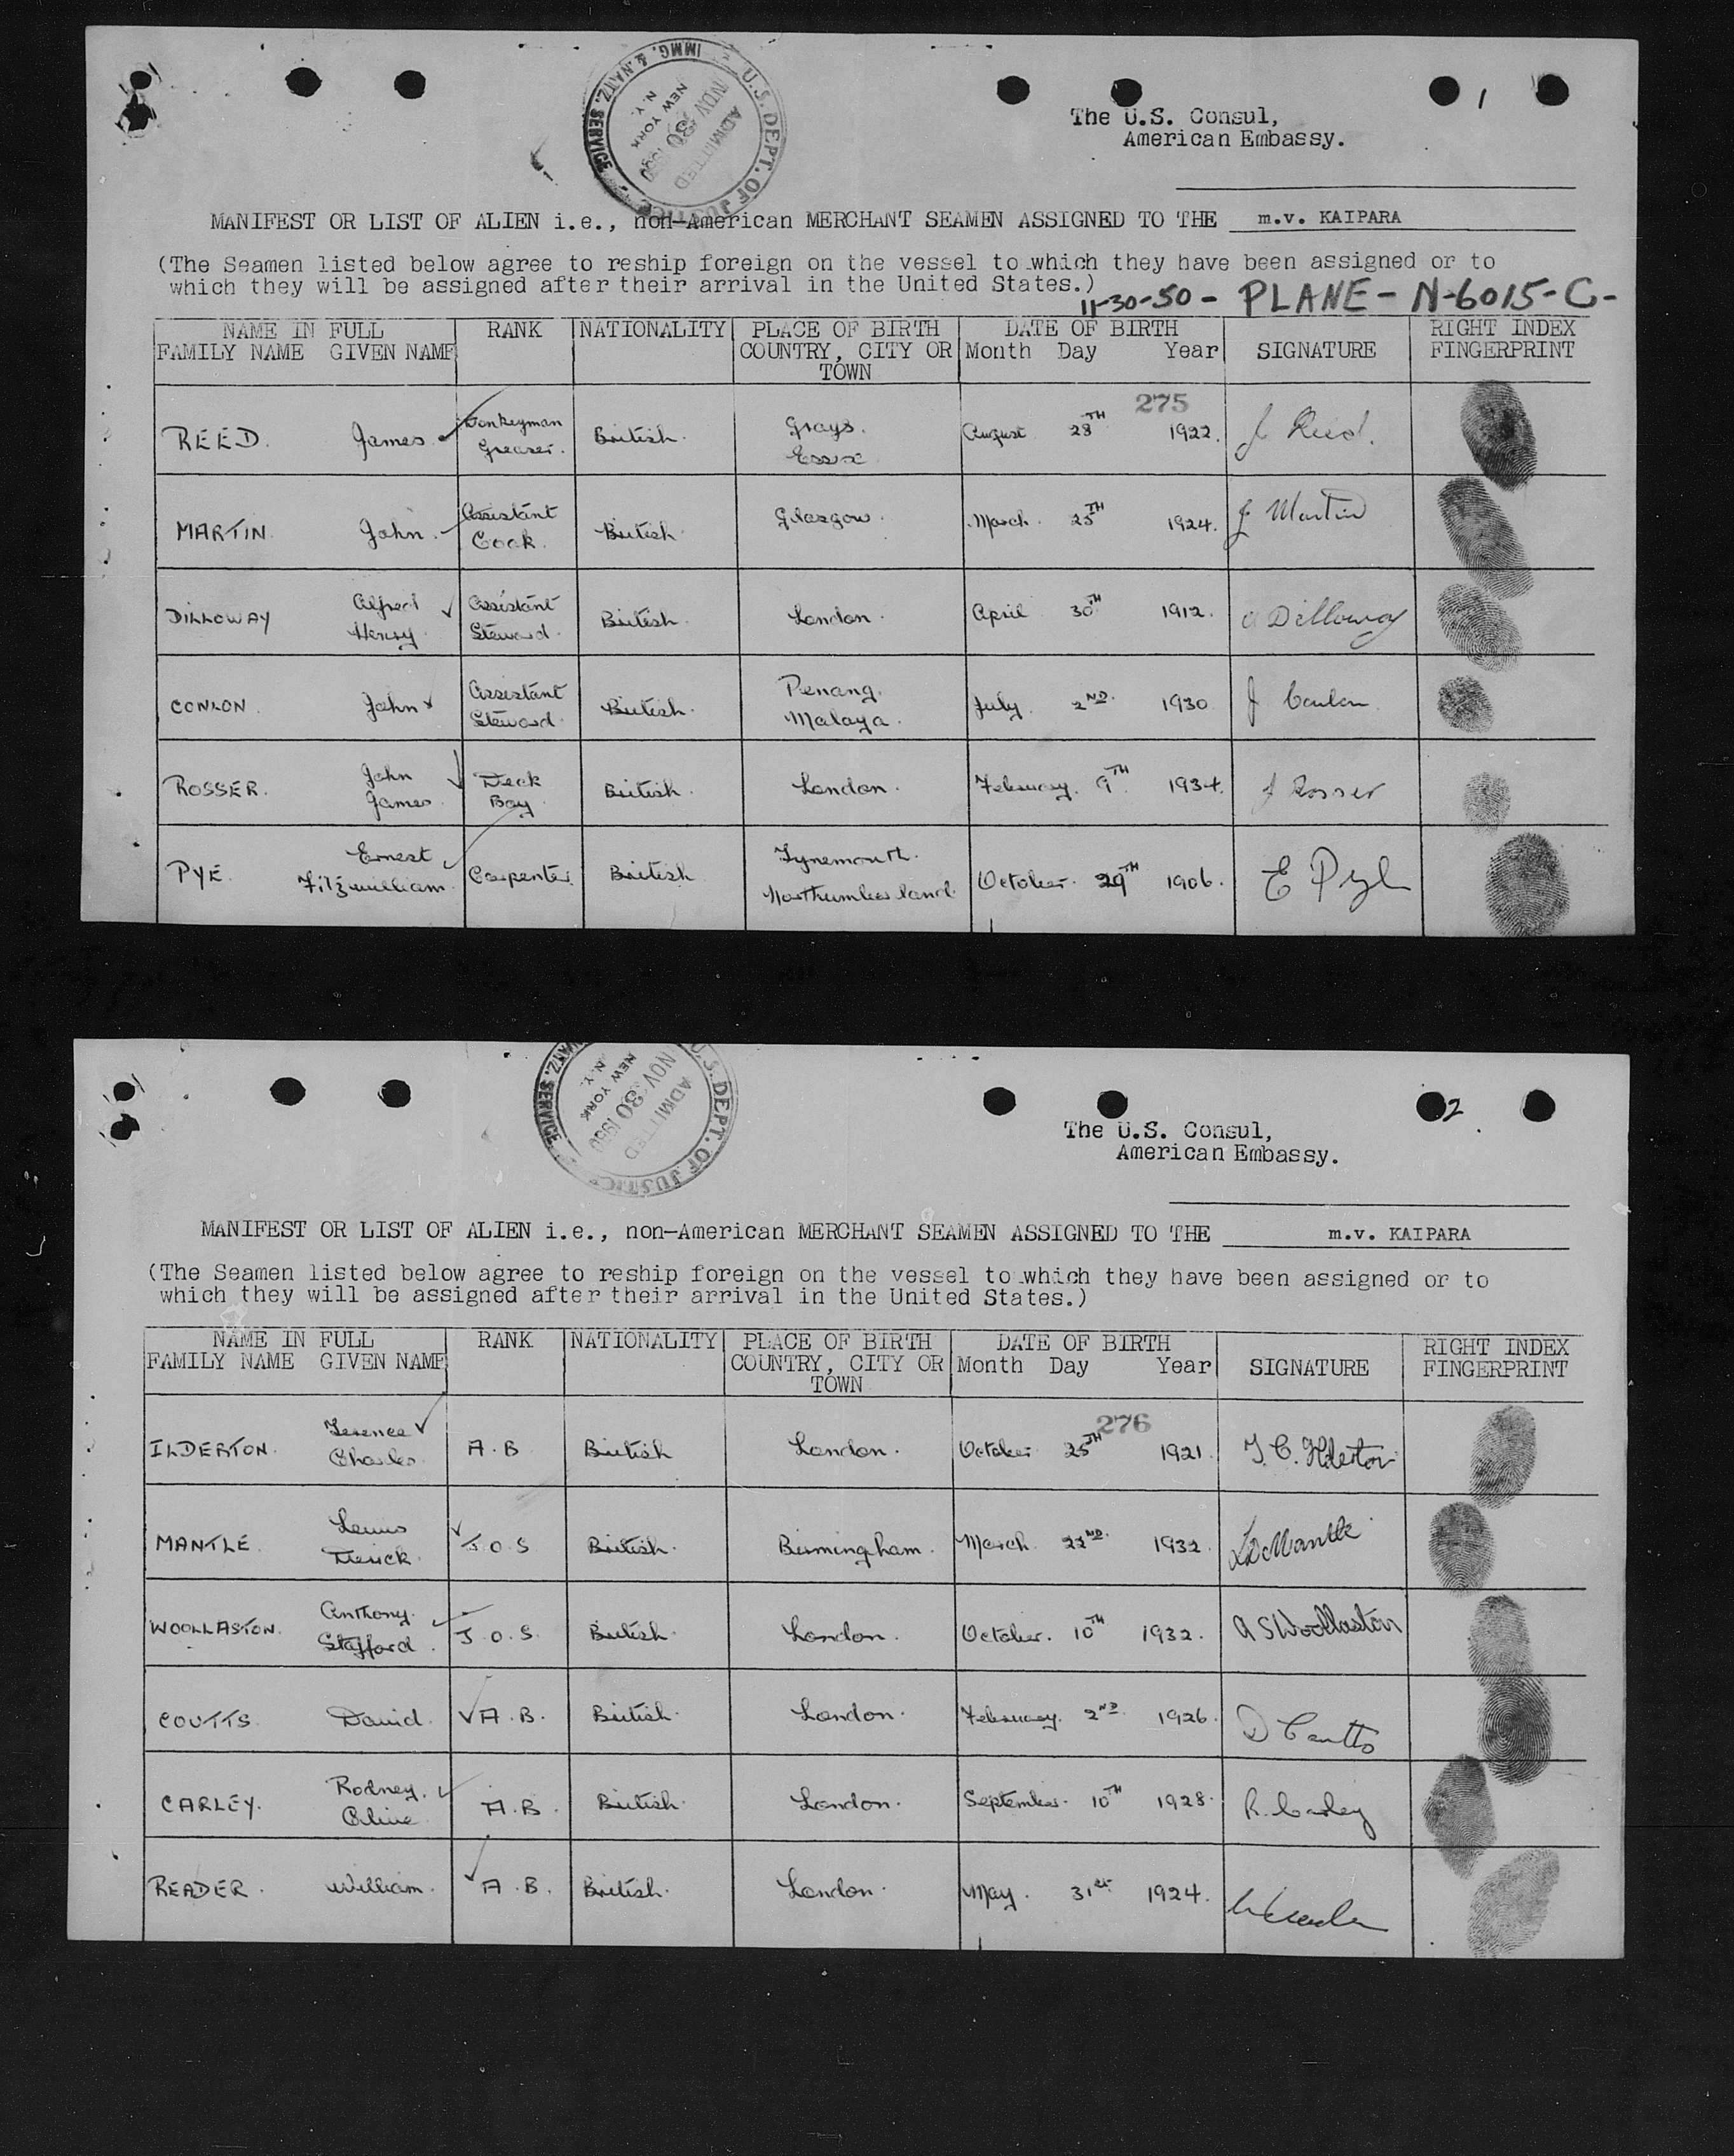 U.S. DEPT. OF JUSTICE
IMMG. & NATZ. SERVICE
ADMITTED
NOV 30 1950
NEW YORK
N.Y.
1
The U.S. Consul,
American Embassy.
MANIFEST OR LIST OF ALIEN i.e., non-American MERCHANT SEAMEN ASSIGNED TO THE m.v. KAIPARA
(The Seamen listed below agree to reship foreign on the vessel to which they have been assigned or to
which they will be assigned after their arrival in the United States.)
11-30-50 - PLANE - N-6015-C-
NAME IN FULL RANK NATIONALITY PLACE OF BIRTH DATE OF BIRTH RIGHT INDEX
FAMILY NAME GIVEN NAME COUNTRY, CITY OR Month Day Year SIGNATURE FINGERPRINT
TOWN
275
REED. James. Donkeyman Greaser. British. Grays. Essex August 28TH 1922. J Reed.
MARTIN. John. Assistant Cook. British. Glasgow. March. 25TH 1924. J Martin
DILLOWAY Alfred Henry. Assistant Steward. British. London. April 30TH 1912. A Dilloway
CONLON. John Assistant Steward. British. Penang. Malaya. July. 2ND. 1930 J Conlon
ROSSER. John James. Deck Boy. British. London. February. 9TH 1934. J Rosser
PYE. Ernest Fitzwilliam. Carpenter. British Tynemouth. Northumberland. October. 29TH 1906. E Pye
U.S. DEPT. OF JUSTICE
NATZ. SERVICE
ADMITTED
NOV 30 1950
NEW YORK
N.Y.
2
The U.S. Consul,
American Embassy.
MANIFEST OR LIST OF ALIEN i.e., non-American MERCHANT SEAMEN ASSIGNED TO THE m.v. KAIPARA
(The Seamen listed below agree to reship foreign on the vessel to which they have been assigned or to
which they will be assigned after their arrival in the United States.)
NAME IN FULL RANK NATIONALITY PLACE OF BIRTH DATE OF BIRTH RIGHT INDEX
FAMILY NAME GIVEN NAME COUNTRY, CITY OR Month Day Year SIGNATURE FINGERPRINT
TOWN
276
ILDERTON. Terence Charles. A.B. British London. October 25TH 1921. T. C. Ilderton
MANTLE. Lewis Derick. J.O.S British. Birmingham. March. 22ND. 1932. LD Mantle
WOOLLASTON. Anthony. Stafford. J.O.S. British. London. October. 10TH 1932. A S Woollaston
COUTTS. David. A.B. British. London. February. 2ND. 1926. D Coutts
CARLEY. Rodney. Clive. A.B. British. London. September. 10TH 1928. R. Carley
READER. William. A.B. British. London. May. 31st 1924.